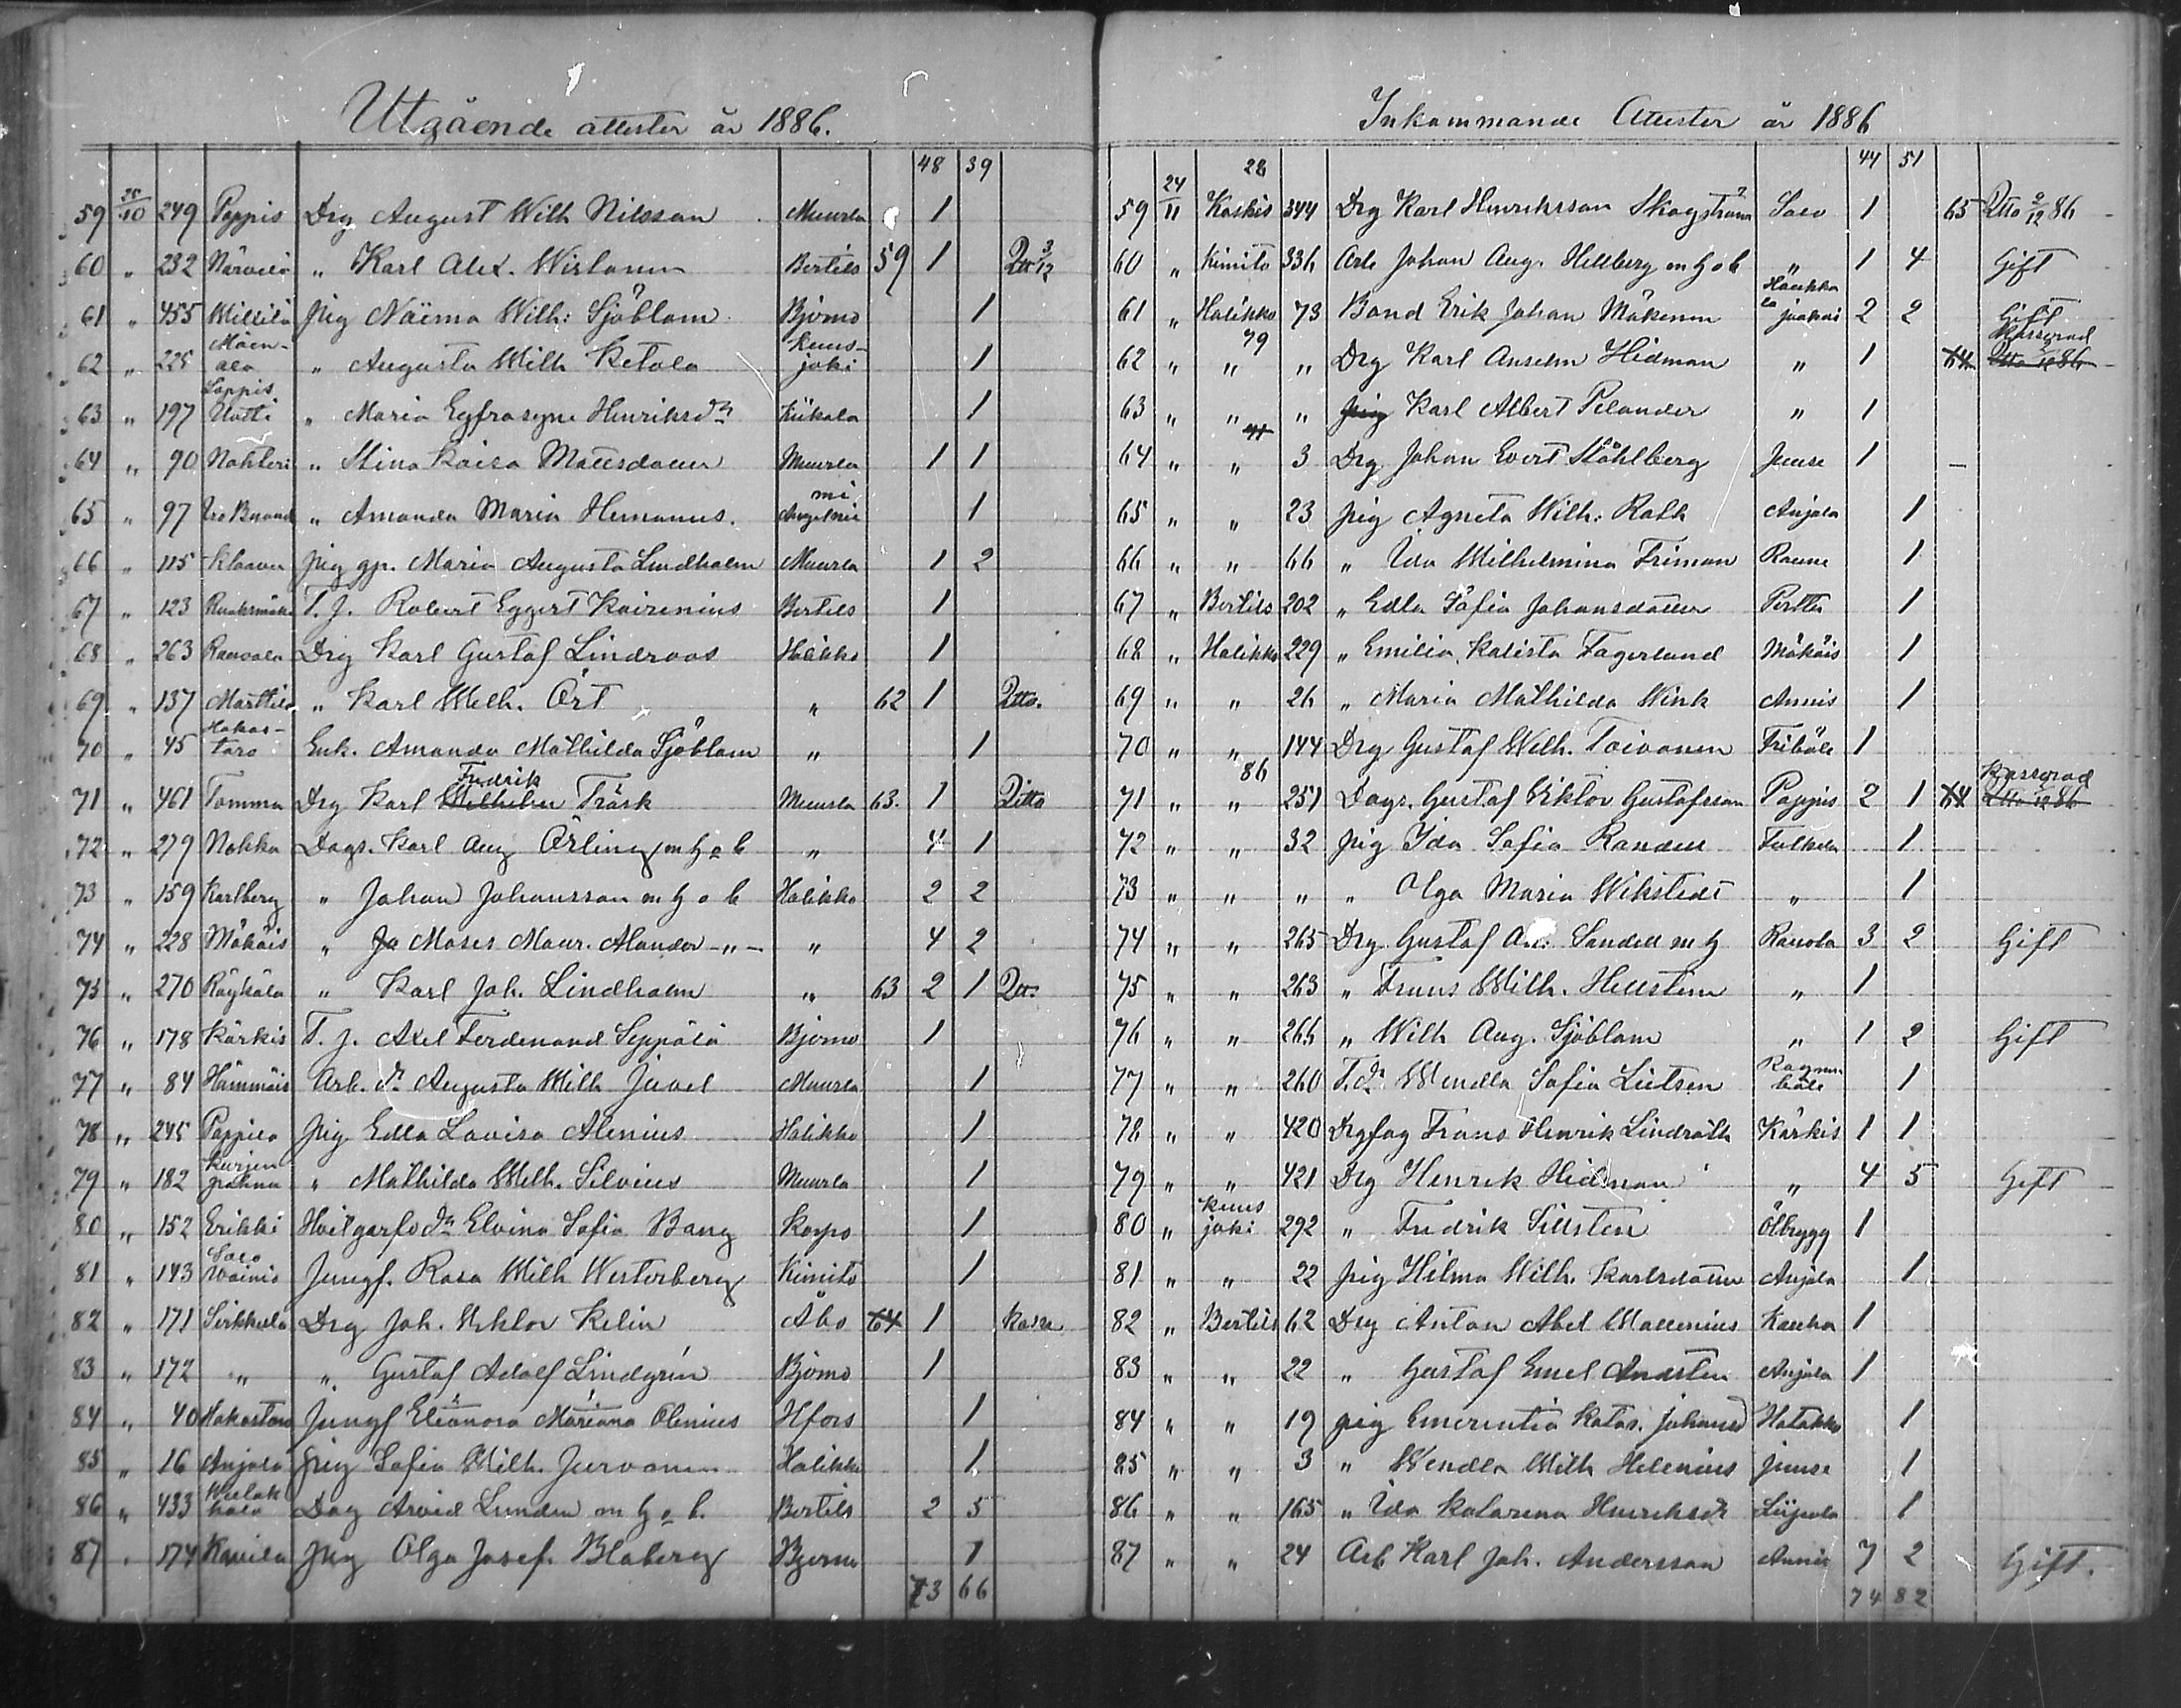 Utgående attester år 1886.
48 39
59 25/10 249 Pappis Drg August Wilh Nilsson Muurla 1
60 " 232 Närvelä " Karl Alex. Wirtanen Bertils 59 1 3/12
61 " 455 Willilä Pig Naima Wilh: Sjöblom Bjerno 1
62 " 225 Mäenala " Augusta Wilh Ketola Kuusjoki 1
63 " 197 Uutti " Maria Eyfrosyne Henriksdr Kiikala 1
64 " 90 " Stina Kaisa Mattsdotter Muurla 1 1
65 " 97 " Amanda Maria Hemanus. 1
66 " 115 Pig gp. Maria Augusta Lindholm Muurla 1 2
67 " 123 T. J. Robert Eggert Kairenius Bertils 1
68 " 263 Drg Karl Gustaf Lindroos Halikko 1
69 " 137 Marttila " Karl Wilh. Ört " 62 1 Ditto.
70 " 45 Hakostaro Enk. Amanda Mathilda Sjöblom " 1
71 " 461 Tomma Drg Karl Wilhelm Fredrik Träsk Muurla 63. 1 Ditto
72 " 279 Nokka Dags. Karl Aug Örling m h o b " 4 1
73 " 159 Karlberg " Johan Johansson m h o b Halikko 2 2
74 " 228 Mökäis " Jo Moses Maur. Alander -"- " 4 2
75 " 270 " Karl Joh. Lindholm " 63 2 1 Ditto
76 " 178 Kärkis T. J. Axel Ferdinand Seppälä Bjerno 1
77 " 84 Hämmäis Arb. dr Augusta Wilh Juvel Muurla 1
78 " 245 Pappila Pig Edla Lovisa Alenius Halikko 1
79 " 182 Kurjenpahna " Mathilda Wilh. Silvius Muurla 1
80 " 152 Erikki dr Elvina Sofia Bang Korpo 1
81 " 143 Salo Wainio Jungf. Rosa Wilh Westerberg Kimito 1
82 " 171 Sirkkula Drg Joh. Viktor Kelin Åbo 64 1
83 " 172 " " Gustaf Adolf Lindgrén Bjerno 1
84 " 40 Hakostaro Jungf Eleonora Mariana Olenius Hfors 1
85 " 16 Anjala Pig Sofia Wilh. Jurvanen Halikko 1
86 " 433 Dag Arvid Lunden m h o b. Bertils 2 5
87 " 174 Kavila Pig Olga Josef. Blåberg Bjerno 1
73 66
Inkommande Attester år 1886
44 51
59 24/11 Kaskis 28 344 Drg Karl Henriksson Skogström Salo 1 65 Ditto 2/12 86
60 " Kimito 336 Arb Johan Aug. Hellberg m h o b " 1 4 Gift
61 " Halikko 73 Bond Erik Johan Mäkinen Haukkala 2 2 Gift
62 " " 79 " Drg Karl Anselm Hidman " 1 64 Ditto 86
63 " " " Pig Karl Albert Pelander " 1
64 " " 3 Drg Johan Evert Ståhlberg Juuse 1 -
65 " " 23 Pig Agneta Wilh: Roth Anjala 1
66 " " 66 " Ida Wilhelmina Friman 1
67 " Bertils 202 " Edla Sofia Johansdotter Perttu 1
68 " Halikko 229 " Emilia Kalista Fagerlund Mökäis 1
69 " " 26 " Maria Mathilda Wink Annis 1
70 " " 144 Drg Gustaf Wilh. Toivonen Friböle 1
71 " " 86 251 Dags. Gustaf Viktor Gustafsson Pappis 2 1 64 Ditto 86
72 " " 32 Pig Ida Sofia Randell 1
73 " " " " Olga Maria Wikstedt " 1
74 " " 265 Drg Gustaf Sandell m h 3 2 Gift
75 " " 263 " Frans Wilh. Hellsten " 1
76 " " 266 " Wilh Aug. Sjöblom " 1 2 Gift
77 " " 260 T. dr Wendla Sofia Lietsén 1
78 " " 420 Frans Henrik Lindroth Kärkis 1 1
79 " " 421 Drg Henrik Hidman " 4 5 Gift
80 " Kuusjoki 292 " Fredrik Sillsten Ölbrygg 1
81 " " 22 Pig Hilma Wilh. Karlsdotter Anjala 1
82 " Bertils 62 Drg Anton Abel Wallenius Kauha 1
83 " " 22 " Gustaf Emil Andsten Anjala 1
84 " " 19 Pig Emerentia Katar. Johansd 1
85 " " 3 " Wendla Wilh Helenius Juuse 1
86 " " 165 " Ida Katarina Henriksdr 1
87 " " 24 Arb Karl Joh. Andersson Annis 7 2 Gift.
74 82